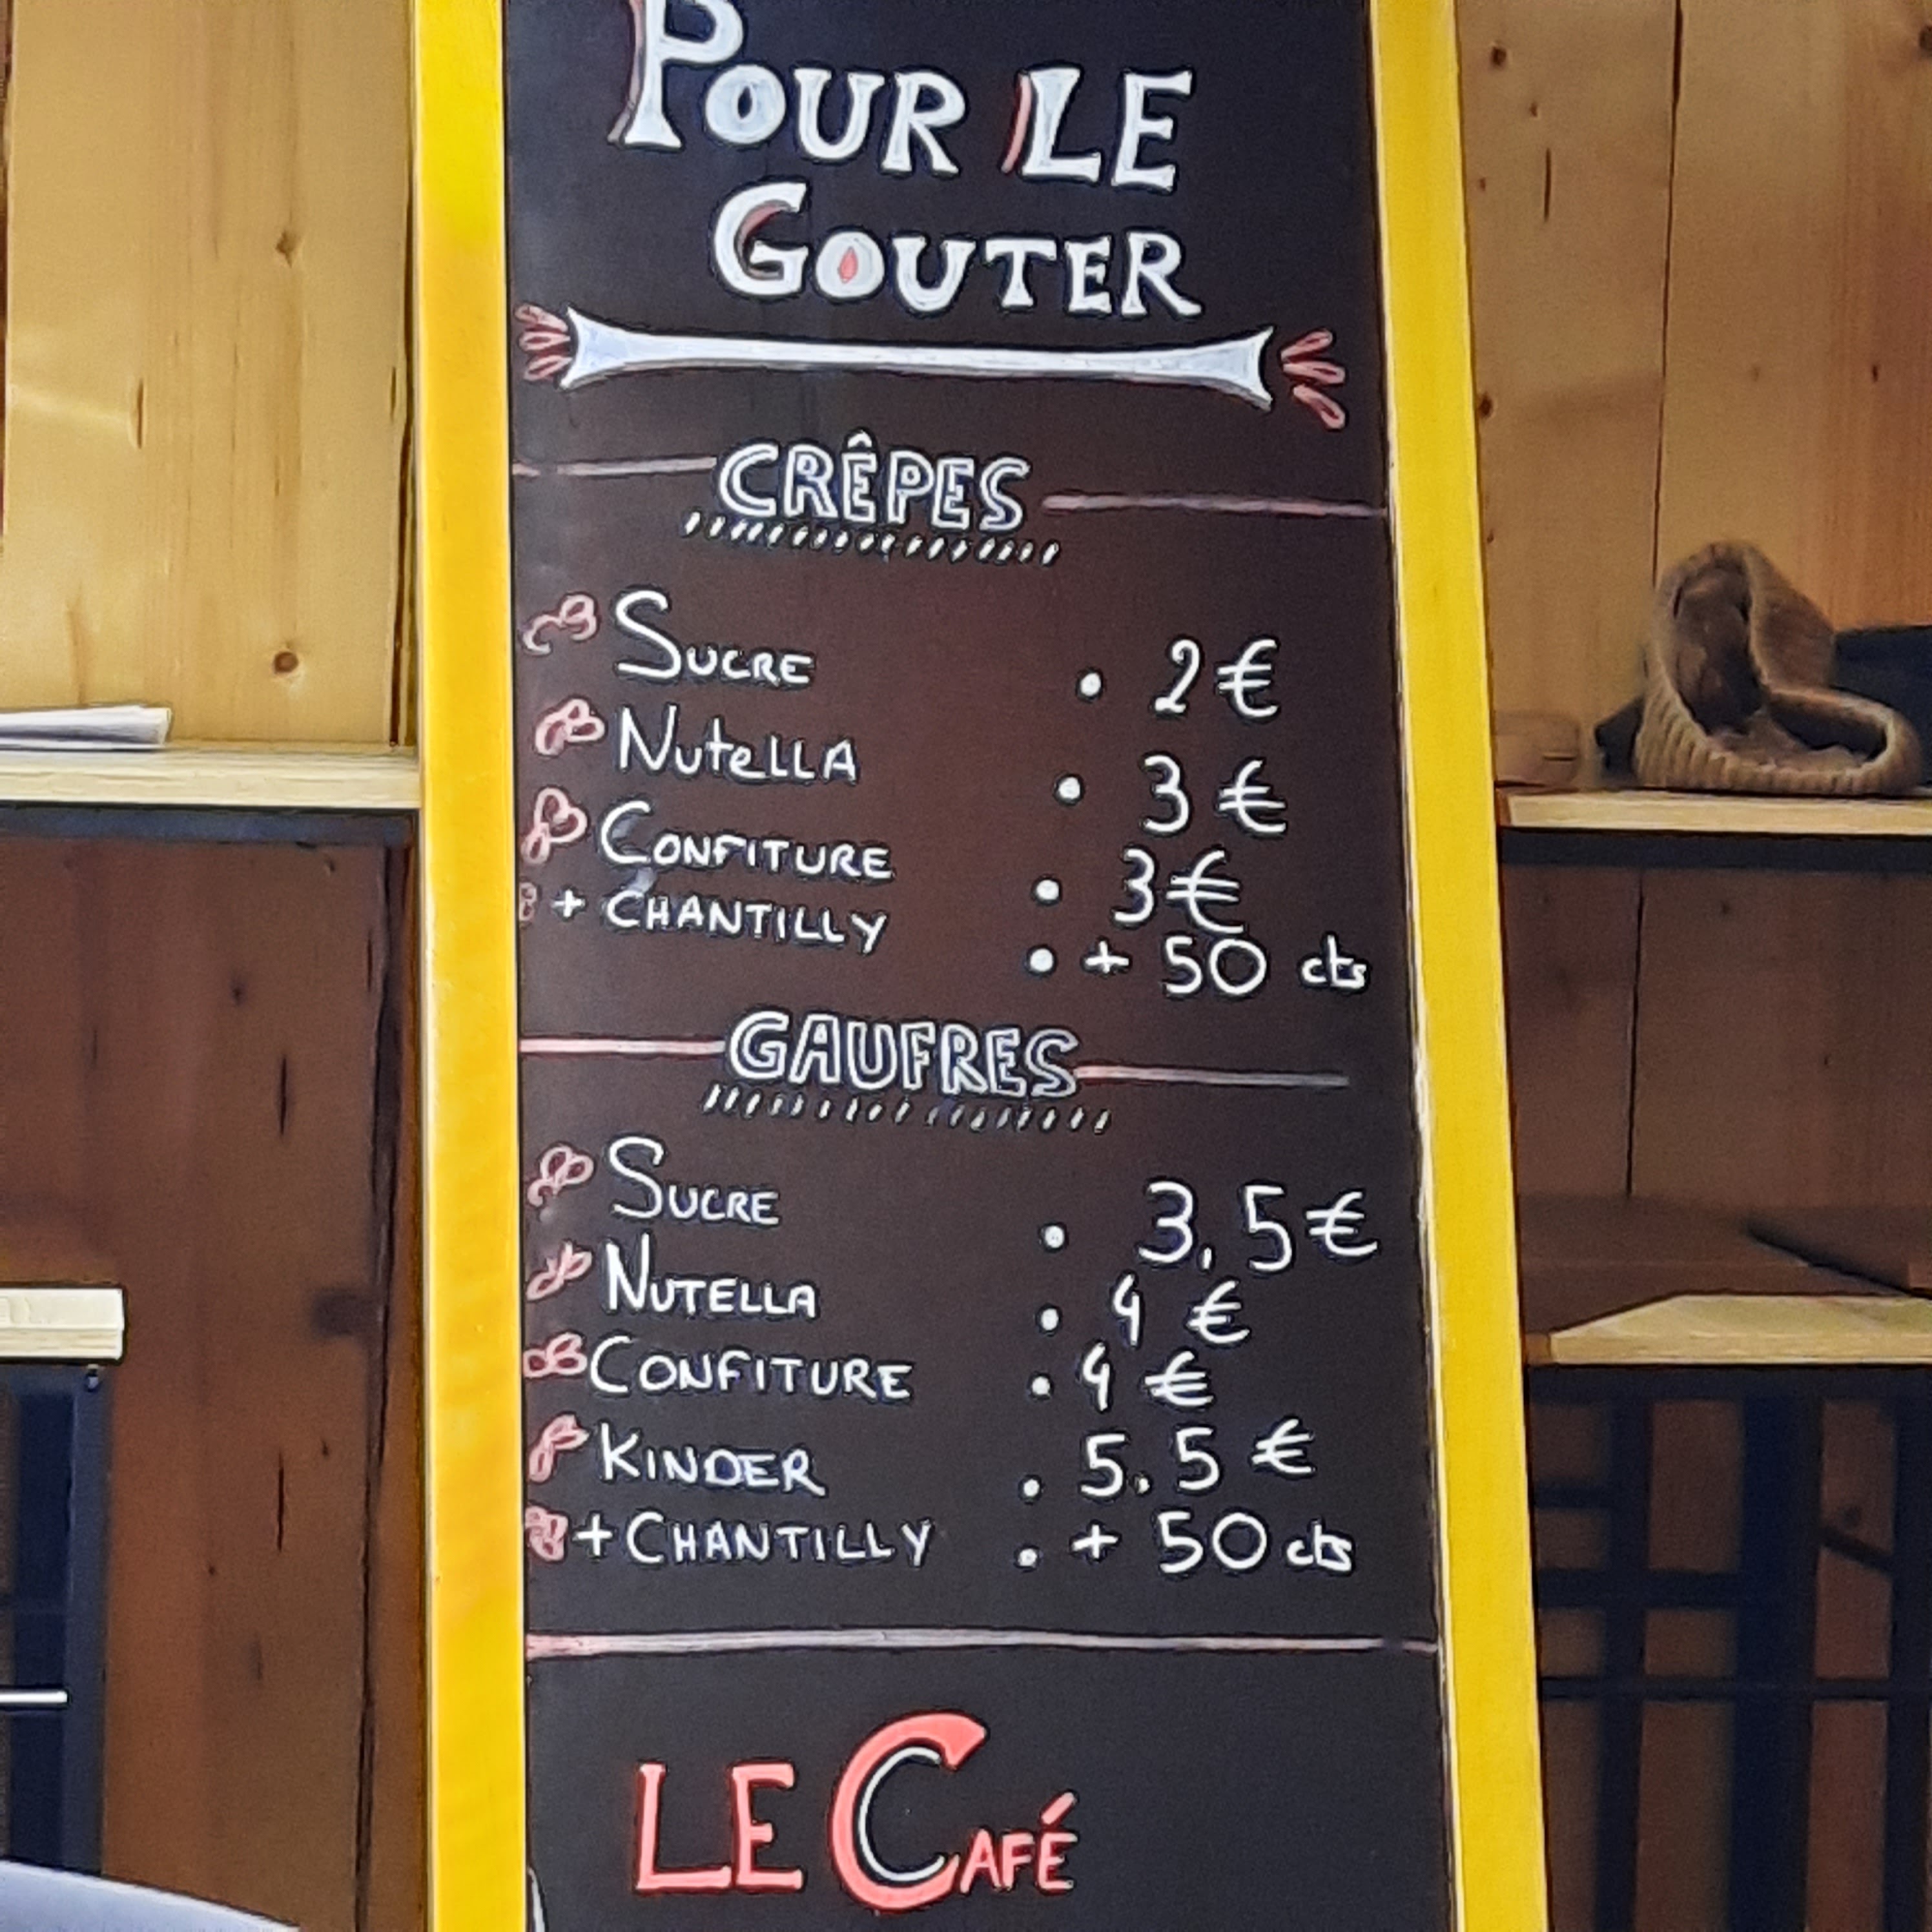 POUR LE
GOUTER
CRÊPES
SUCRE • 2 €
NuteLLA • 3 €
CONFITURE • 3 €
+ CHANTILLY • + 50 cts
GAUFRES
SUCRE • 3,5 €
NUTELLA • 4 €
CONFITURE • 4 €
KINDER • 5,5 €
+ CHANTILLY • + 50 cts
LE CAFÉ